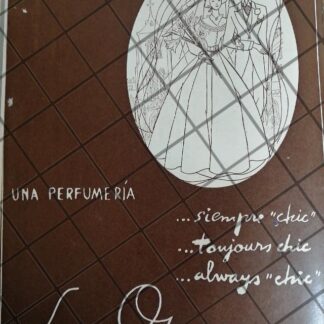 UNA PERFUMERÍA
...siempre "chic"
...toujours chic
...always "chic"